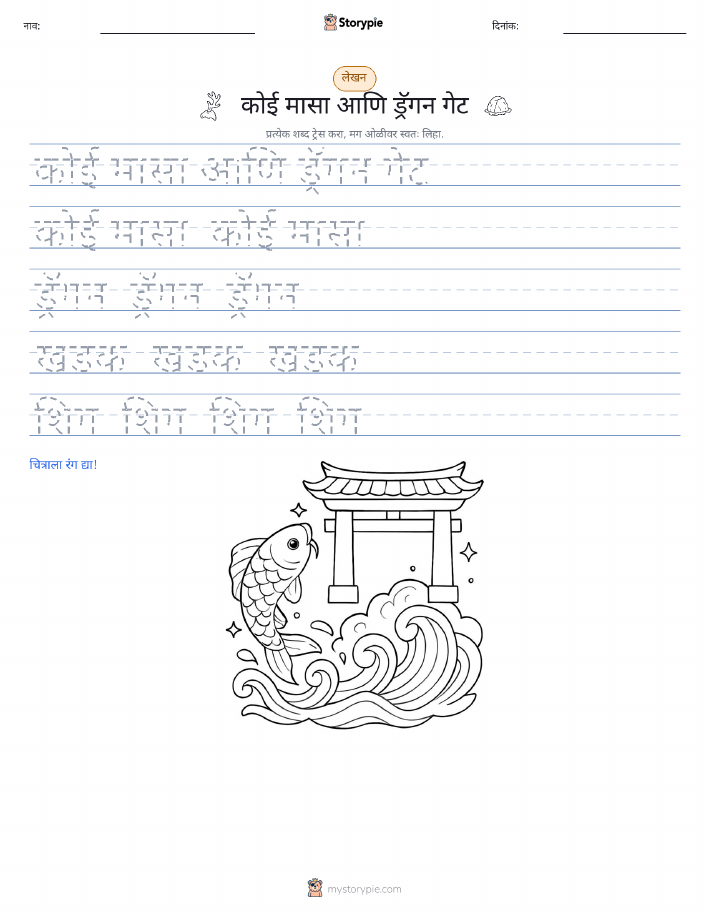 नाव:
Storypie
दिनांक:
लेखन
कोई मासा आणि ड्रॅगन गेट
प्रत्येक शब्द ट्रेस करा, मग ओळीवर स्वतः लिहा.
कोई मासा आणि ड्रॅगन गेट
कोई मासा कोई मासा
ड्रॅगन ड्रॅगन ड्रॅगन
खडक खडक खडक
शिंग शिंग शिंग शिंग
चित्राला रंग द्या!
mystorypie.com